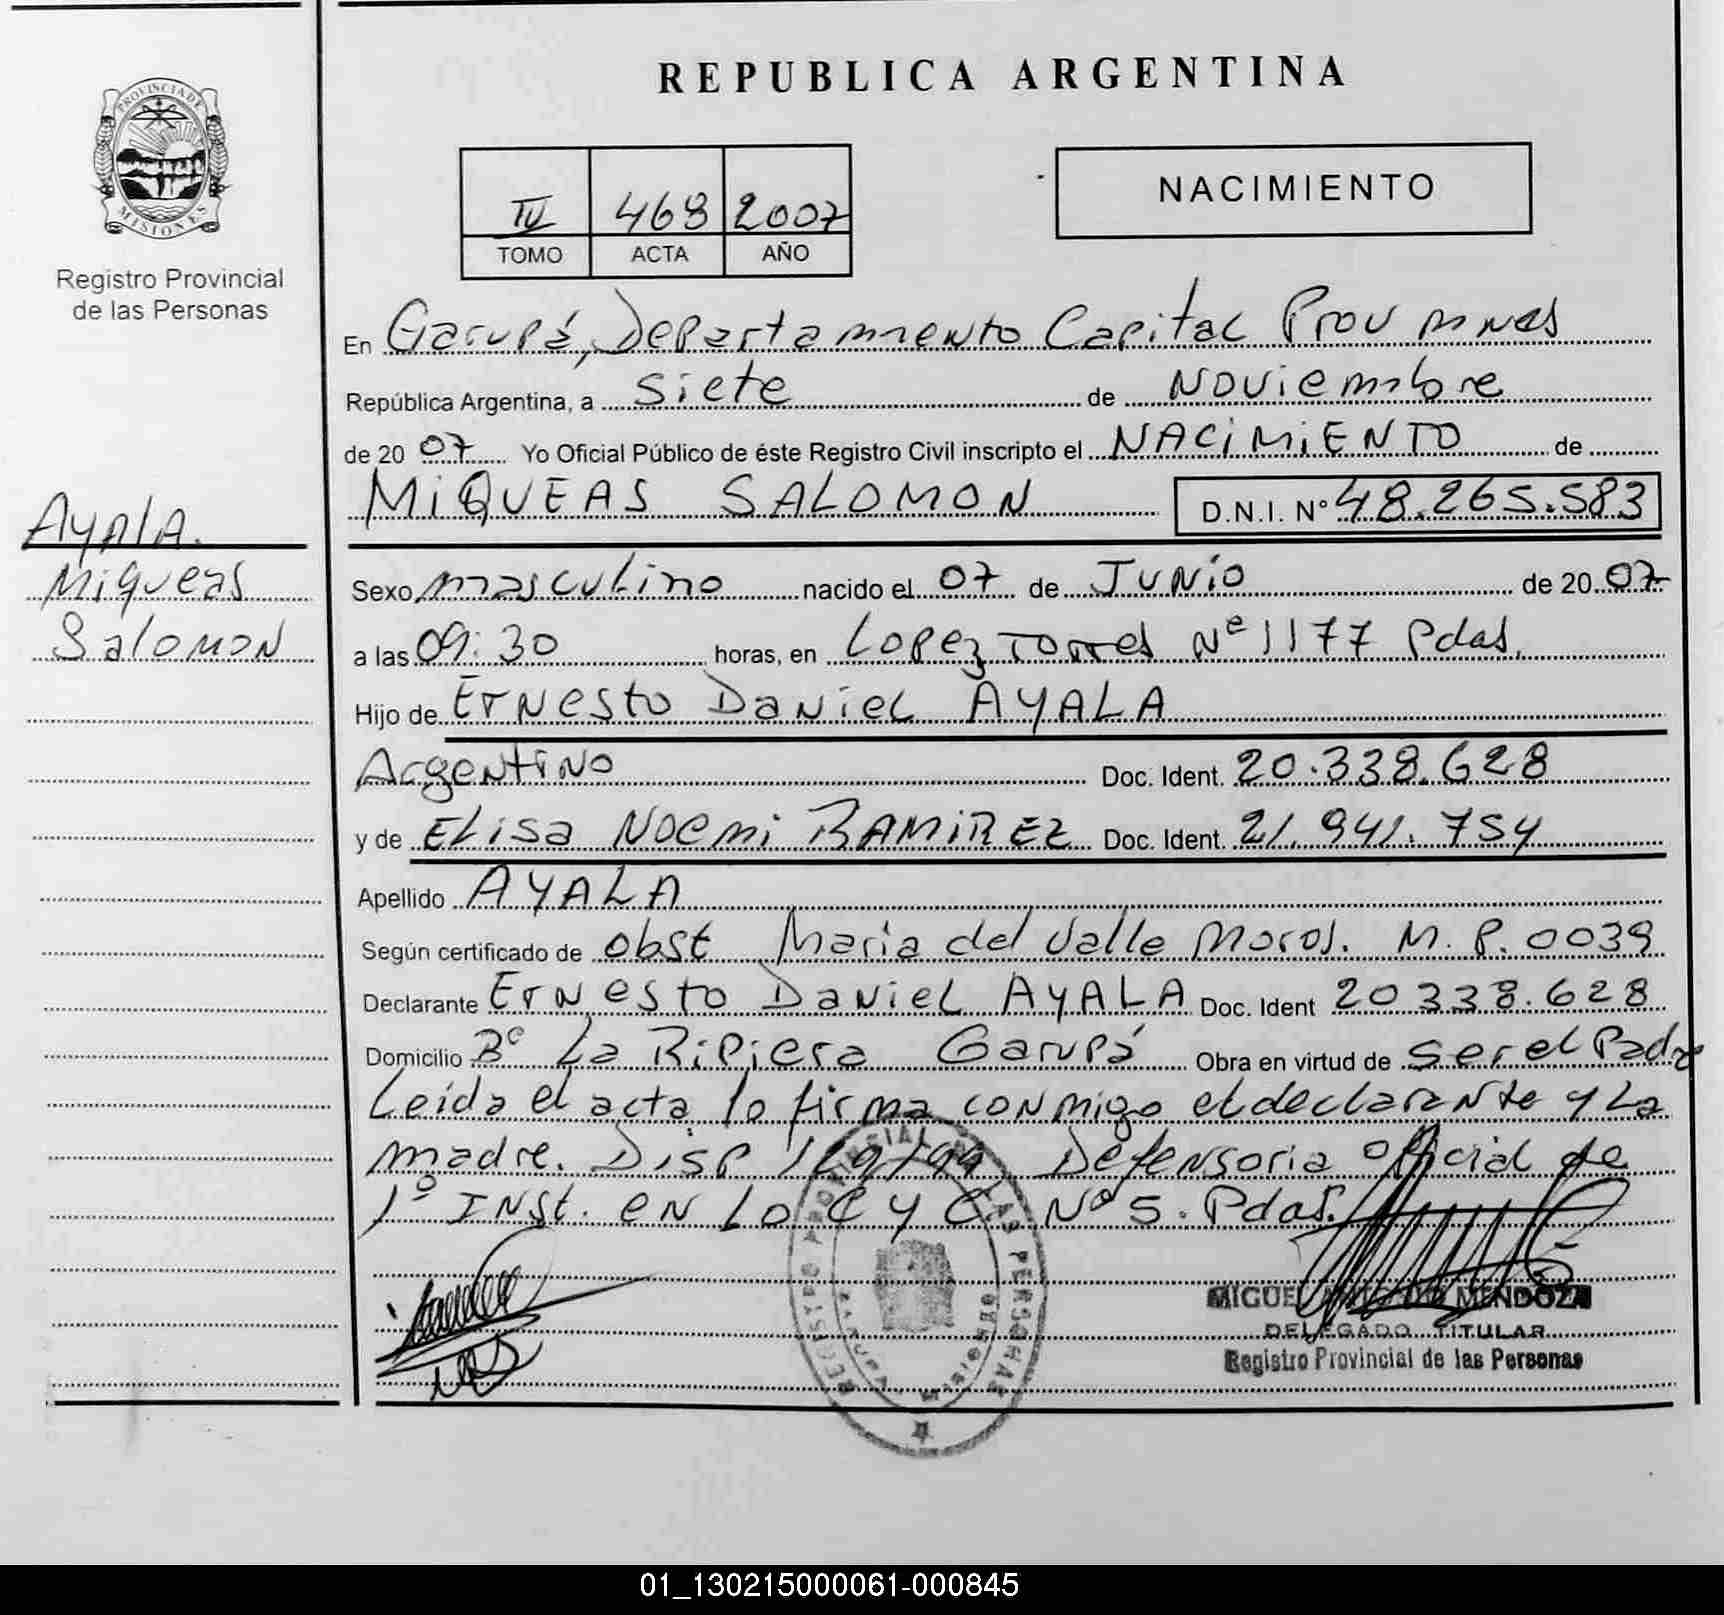 REPUBLICA ARGENTINA
PROVINCIA DE
MISIONES
Registro Provincial
de las Personas
IV 468 2007
TOMO ACTA AÑO
NACIMIENTO
En Garupá, Departamento Capital Prov mnes
República Argentina, a siete de Noviembre
de 20 07 Yo Oficial Público de éste Registro Civil inscripto el NACIMIENTO de
MIQUEAS SALOMON D.N.I. Nº 48.265.583
Ayala.
Miqueas
Salomon
Sexo masculino nacido el 07 de Junio de 20 07
a las 09:30 horas, en Lopez Torres Nº 1177 Pdas.
Hijo de Ernesto Daniel AYALA
Argentino Doc. Ident. 20.338.628
y de Elisa Noemi RAMIREZ Doc. Ident. 21.941.754
Apellido AYALA
Según certificado de obst Maria del Valle Moros. M.P. 0039
Declarante Ernesto Daniel AYALA Doc. Ident 20338.628
Domicilio Bº La Ripiera Garupá Obra en virtud de ser el Padre
Leida el acta lo firma conmigo el declarante y La
madre. Disp 129/99 Defensoria Oficial de
1º Inst. en Lo C y C. Nº 5. Pdas.
REGISTRO PROVINCIAL DE LAS PERSONAS
MIGUEL MENDOZA
DELEGADO TITULAR
Registro Provincial de las Personas
01_130215000061-000845